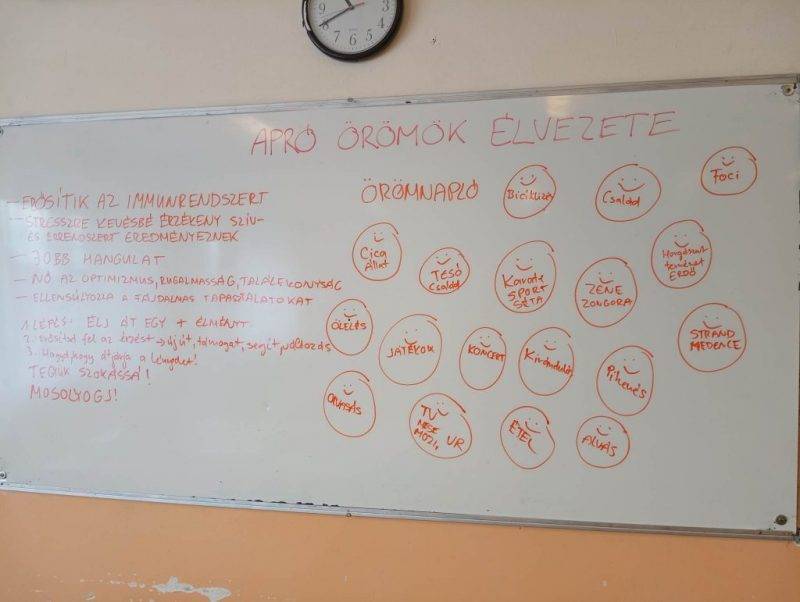 9
3
8
4
7
6
5
APRÓ ÖRÖMÖK ÉLVEZETE
- ERŐSÍTIK AZ IMMUNRENDSZERT
- STRESSZRE KEVÉSBÉ ÉRZÉKENY SZÍV-
ÉS ÉRRENDSZERT EREDMÉNYEZNEK
- JOBB HANGULAT
- NŐ AZ OPTIMIZMUS, RUGALMASSÁG, TALÁLÉKONYSÁG
- ELLENSÚLYOZZA A FÁJDALMAS TAPASZTALATOKAT
1. LÉPÉS: ÉLJ ÁT EGY + ÉLMÉNYT
2. erősítsd fel az érzést → új út, támogat, segít, változás
3. Hagyd, hogy átjárja a lényedet!
TEGYÜK SZOKÁSSÁ!
MOSOLYOGJ!
ÖRÖMNAPLÓ
Biciklizés
Család
Foci
Cica
állat
TESÓ
Család
Karate
SPORT
SÉTA
ZENE
ZONGORA
természet
ERDŐ
ÖLELÉS
JÁTÉKOK
KONCERT
Kirándulás
Pihenés
STRAND
MEDENCE
OLVASÁS
TV
MESE
MOZI, VR
ÉTEL
ALVÁS